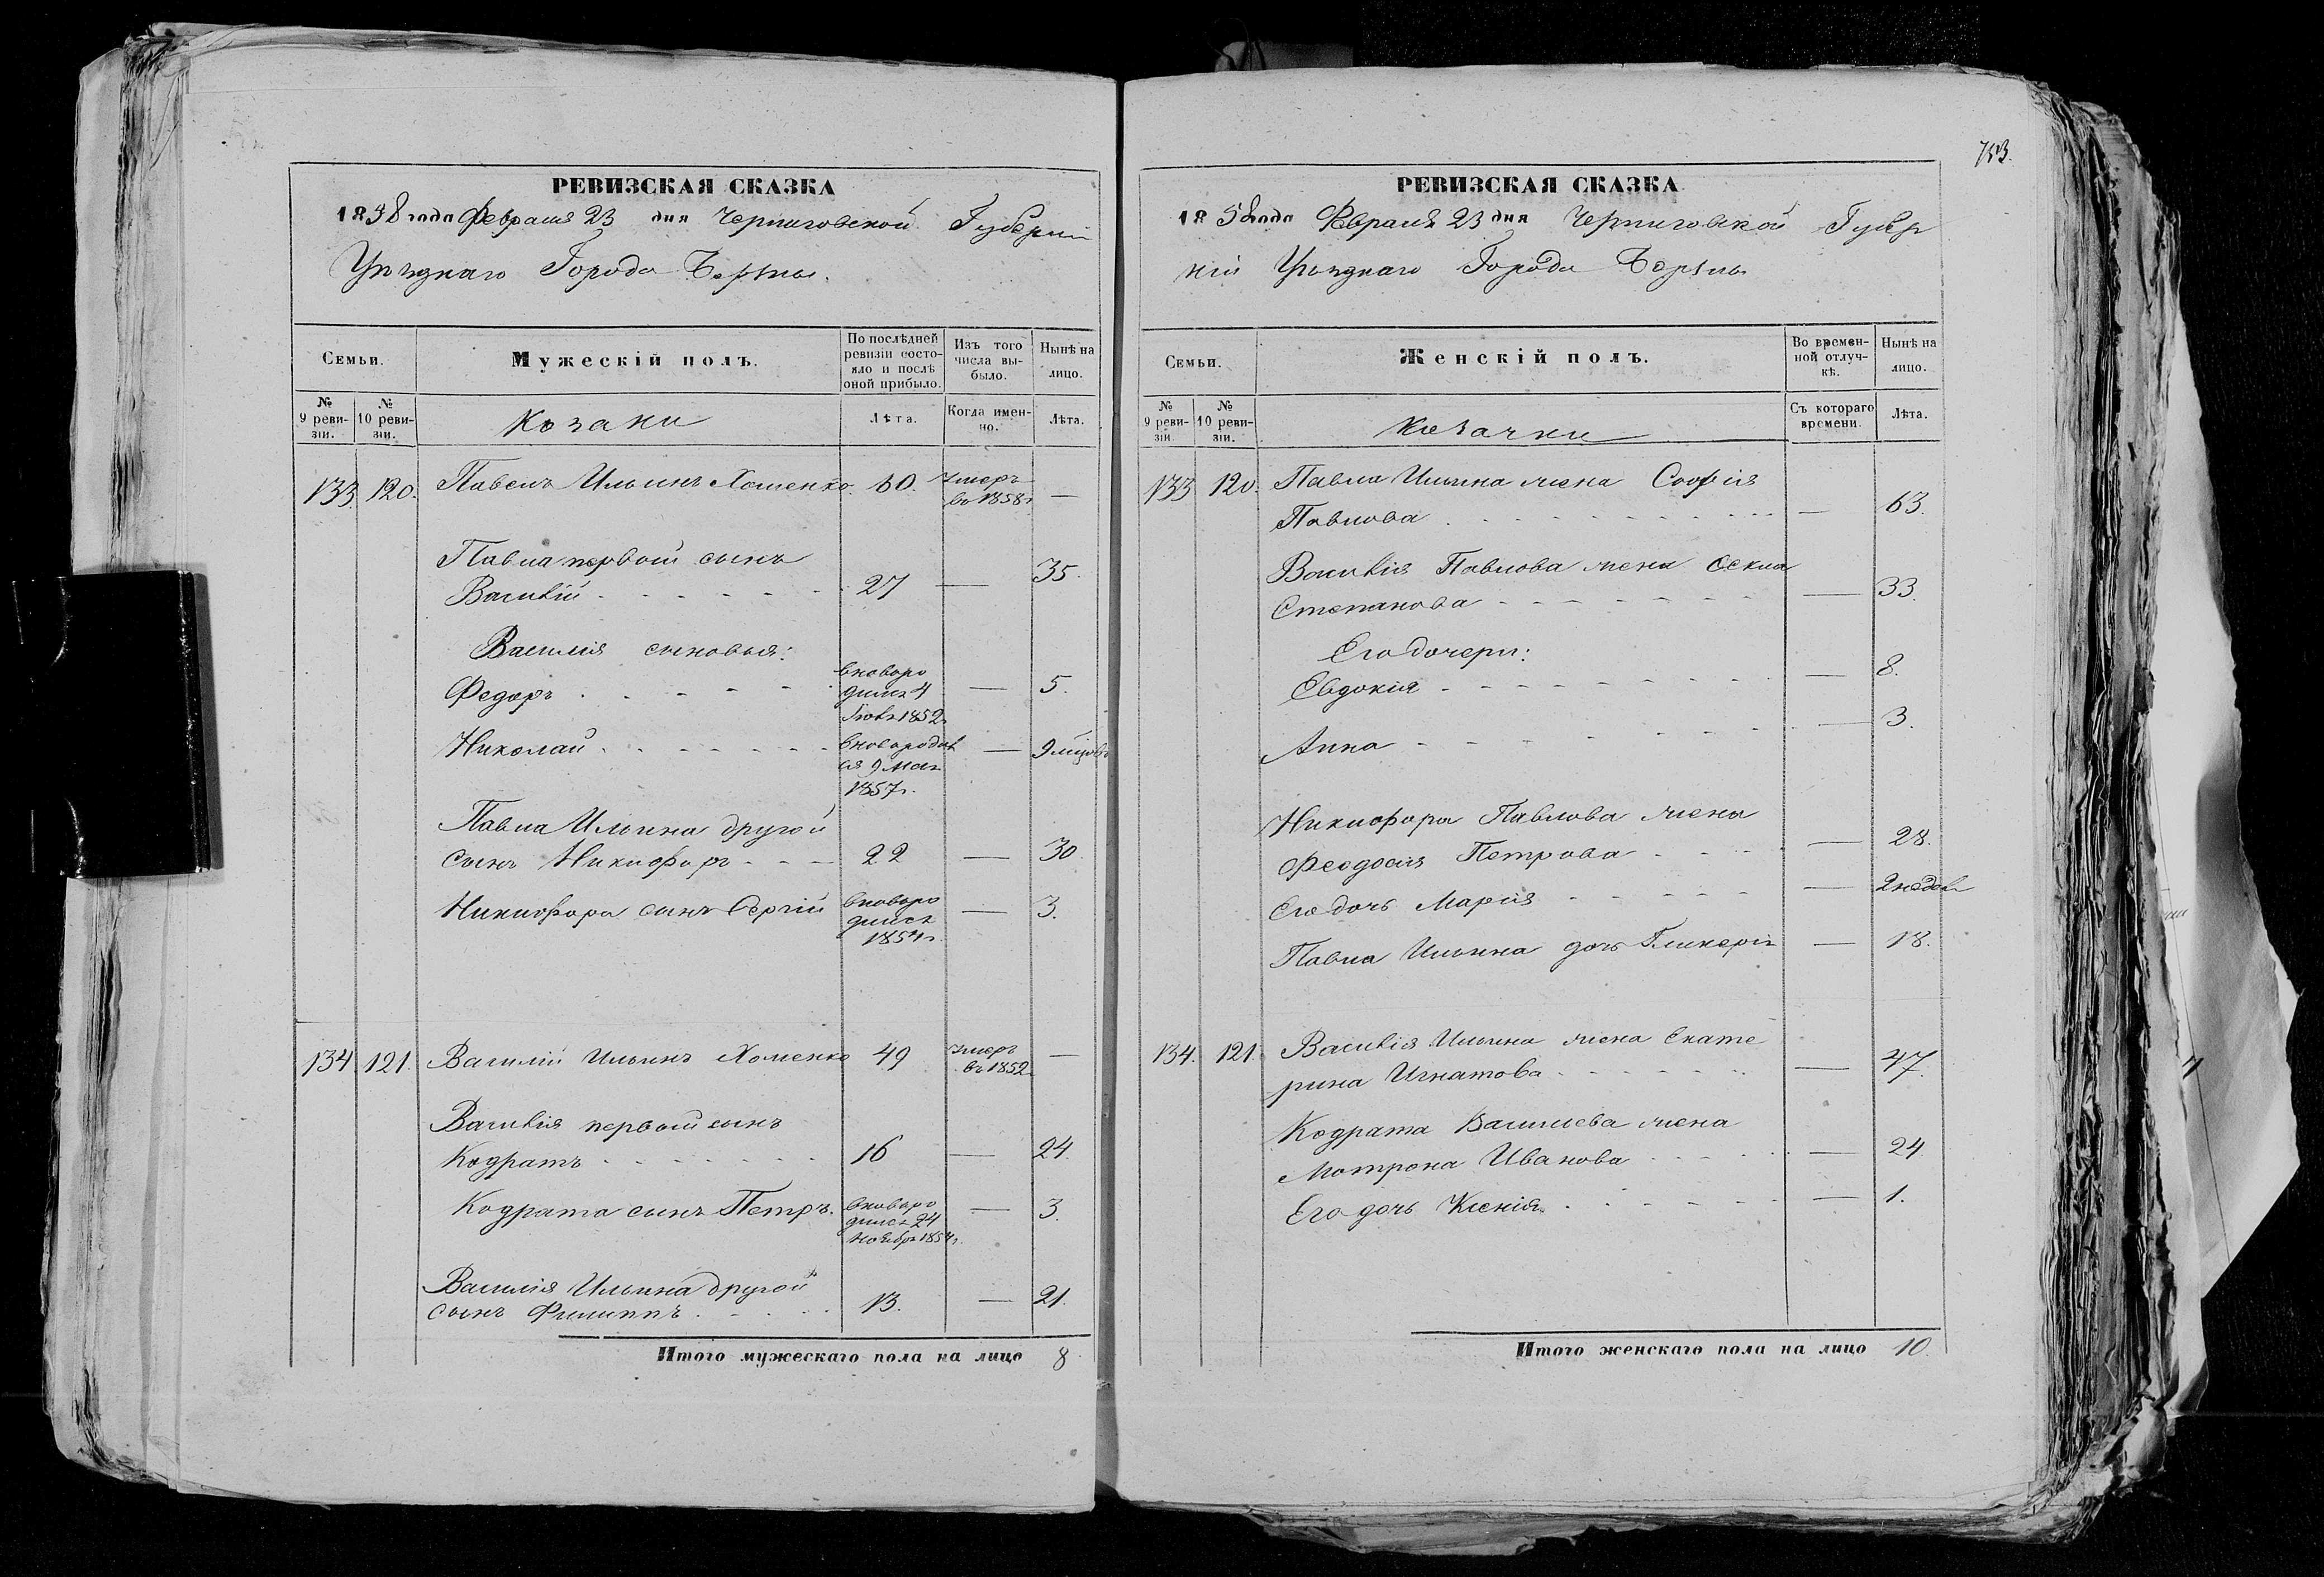 753.
РЕВИЗСКАЯ СКАЗКА
1858 года Февраля 23 дня Черниговской Губерніи
Уѣзднаго Города Берзны.
Семьи.
Мужескій полъ.
По послѣдней ревизіи состояло и послѣ оной прибыло.
Изъ того числа выбыло.
Нынѣ на лицо.
№ 9 ревизіи.
№ 10 ревизіи.
Козаки
Лѣта.
Когда именно.
Лѣта.
133. 120. Павелъ Ильинъ Хоменко. 50. умеръ въ 1858г. —
Павла первой сынъ
Василій - - - - - - 27 — 35.
Василія сыновья:
Федоръ - - - - - вновьро
дился 4 — 5.
1852г.
Николай - - - - - - вновь родил
ся 9 Мая — 9 мцовъ
1857г.
Павла Ильина другой
сынъ Никифоръ - - - 22 — 30.
Никифора сынъ Сергій вновьро
дился — 3.
1854г.
134 121. Василій Ильинъ Хоменко 49 умеръ въ 1852. —
Василія первый сынъ
Кодратъ - - - - - - 16 — 24.
Кодрата сынъ Петръ. вновьро
дился 24 — 3.
Ноября 1854г.
Василія Ильина другой
сынъ Филиппъ - - - - 13. — 21.
Итого мужескаго пола на лицо 8
РЕВИЗСКАЯ СКАЗКА
1858 года Февраля 23 дня Черниговской Губер
ніи Уѣзднаго Города Берзны
Семьи.
Женскій полъ.
Во временной отлучкѣ.
Нынѣ на лицо.
№ 9 ревизіи
№ 10 ревизіи.
Козачки
Съ котораго времени.
Лѣта.
133 120. Павла Ильина жена Софія
Павлова - - - - - - — 63.
Василія Павлова жена Фекла
Степанова - - - - - - — 33.
Его дочери:
Евдокія - - - - - - — 8.
Анна - - - - - - — 3.
Никифора Павлова жена
Феодосія Петрова - - - — 28.
Его дочь Марія - - - - - — 2 недел
Павла Ильина дочь Гликерія — 18.
134. 121. Василія Ильина жена Екате
рина Игнатова - - - - - — 47.
Кодрата Васильева жена
Мотрона Иванова - - - - — 24.
Его дочь Ксенія. - - - - - — 1.
Итого женскаго пола на лицо 10.